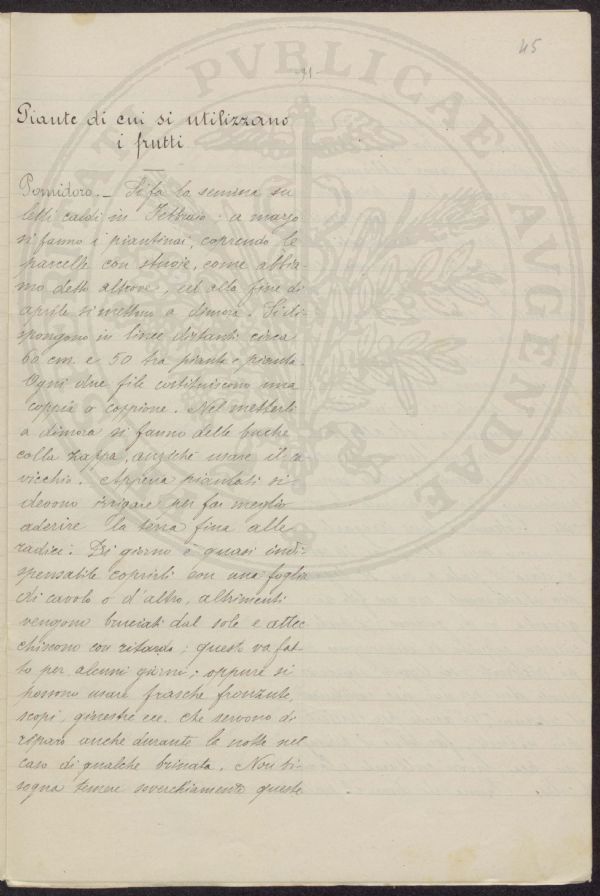 45
-31-
Piante di cui si utilizzano
i frutti
Pomidoro. - Si fa la semina su
letti caldi in Febbraio: a marzo
si fanno i piantinai, coprendo le
parcelle con stuoie, come abbia-
mo detto altrove, ed alla fine di
aprile si mettono a dimora. Si di-
spongono in linee distanti circa
60 cm. e 50 tra pianta e pianta.
Ogni due file costituiscono una
coppia o coppione. Nel metterli
a dimora si fanno delle buche
colla zappa, anzichè usare il
vicchio. Appena piantati si
devono irrigare per far meglio
aderire la terra fina alle
radici. Di giorno è quasi indi-
spensabile coprirli con una foglia
di cavolo o d'altro, altrimenti
vengono bruciati dal sole e attec
chiscono con ritardo; questo va fat-
to per alcuni giorni; oppure si
possono usare frasche fronzute,
scopi, ginestre ecc. che servono di
riparo anche durante la notte nel
caso di qualche brinata. Non bi-
sogna temere soverchiamente queste
PVBLICAE
AVGENDAE